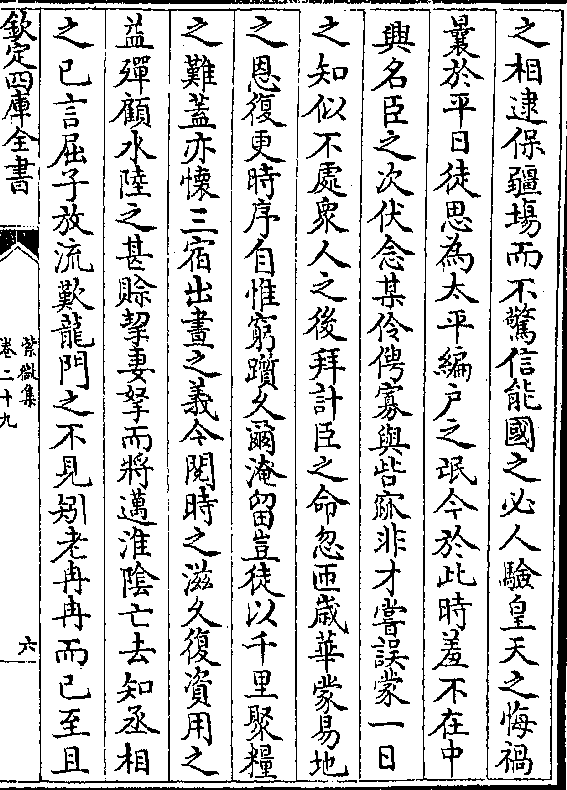 之相逮保疆場而不驚信能國之必人驗皇天之悔禍
曩於平日徒思為太平編户之氓今於此時羞不在中
興名臣之次伏念某伶俜寡與呰窳非才嘗誤蒙一日
之知似不處衆人之後拜計臣之命忽匝歲華蒙易地
之恩復更時序自惟窮躓久爾淹留豈徒以千里聚糧
之難蓋亦懐三宿出晝之義今閱時之滋久復資用之
益殫顧水陸之甚賖挈妻孥而將邁淮陰亡去知丞相
之已言屈子放流歎龍門之不見矧老冉冉而已至且
欽定四庫全書
紫微集
卷二十九
六